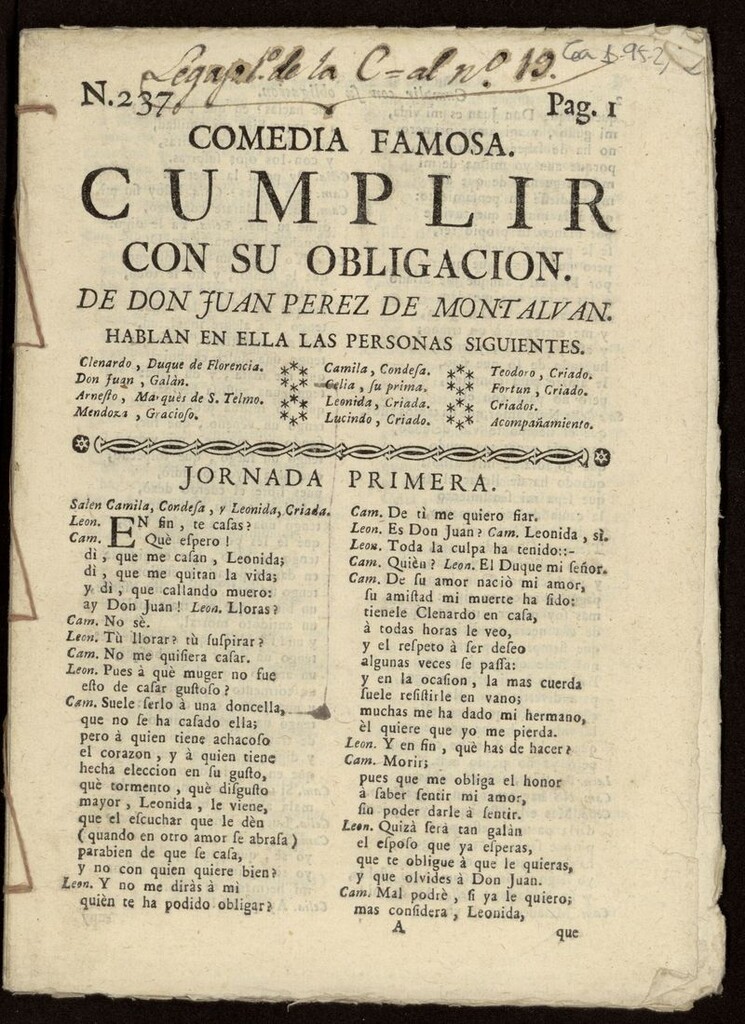 Legajo 1.º de la C=al nº 19.
N.237.
Pag. 1
COMEDIA FAMOSA.
CUMPLIR
CON SU OBLIGACION.
DE DON JUAN PEREZ DE MONTALVAN.
HABLAN EN ELLA LAS PERSONAS SIGUIENTES.
Clenardo, Duque de Florencia.
Don Juan, Galàn.
Arnesto, Marquès de S. Telmo.
Mendoza, Gracioso.
Camila, Condesa.
Celia, su prima.
Leonida, Criada.
Lucindo, Criado.
Teodoro, Criado.
Fortun, Criado.
Criados.
Acompañamiento.
JORNADA PRIMERA.
Salen Camila, Condesa, y Leonida, Criada.
Leon. EN fin, te casas?
Cam. Què espero!
dì, que me casan, Leonida;
dì, que me quitan la vida;
y dì, que callando muero:
ay Don Juan! Leon. Lloras?
Cam. No sè.
Leon. Tù llorar? tù suspirar?
Cam. No me quisiera casar.
Leon. Pues à què muger no fue
esto de casar gustoso?
Cam. Suele serlo à una doncella,
que no se ha casado ella;
pero à quien tiene achacoso
el corazon, y à quien tiene
hecha eleccion en su gusto,
què tormento, què disgusto
mayor, Leonida, le viene,
que el escuchar que le dèn
(quando en otro amor se abrasa)
parabien de que se casa,
y no con quien quiere bien?
Leon. Y no me diràs à mi
quièn te ha podido obligar?
Cam. De tì me quiero fiar.
Leon. Es Don Juan? Cam. Leonida, sì.
Leon. Toda la culpa ha tenido::-
Cam. Quièn? Leon. El Duque mi señor.
Cam. De su amor naciò mi amor,
su amistad mi muerte ha sido:
tienele Clenardo en casa,
à todas horas le veo,
y el respeto à ser deseo
algunas veces se passa:
y en la ocasion, la mas cuerda
suele resistirle en vano;
muchas me ha dado mi hermano,
èl quiere que yo me pierda.
Leon. Y en fin, què has de hacer?
Cam. Morir;
pues que me obliga el honor
à saber sentir mi amor,
sin poder darle à sentir.
Leon. Quizà serà tan galàn
el esposo que ya esperas,
que te obligue à que le quieras,
y que olvides à Don Juan.
Cam. Mal podrè, si ya le quiero;
mas considera, Leonida,
A
que